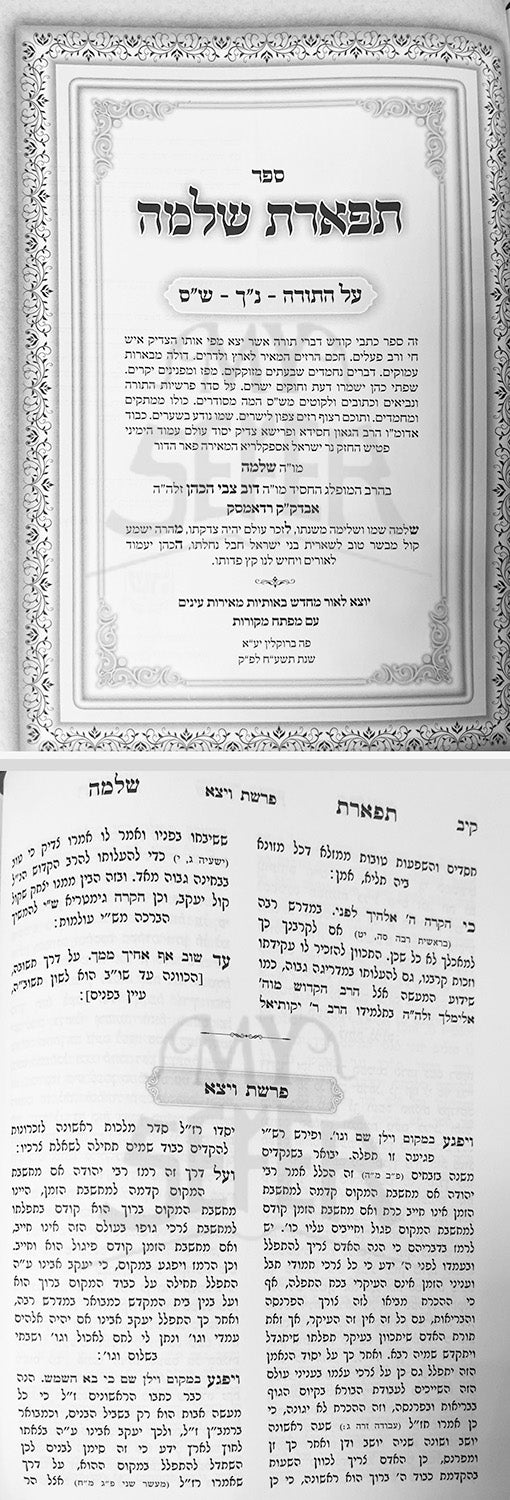 ספר
תפארת שלמה
על התורה - נ"ך - ש"ס
זה ספר כתבי קודש דברי תורה אשר יצא מפי אותו הצדיק איש
חי ורב פעלים. חכם הרזים המאיר לארץ ולדרים. דולה מבארות
עמוקים. דברים נחמדים שבעתים מזוקקים. מפז ומפנינים יקרים.
שפתי כהן ישמרו דעת וחוקים ישרים. על סדר פרשיות התורה
ונביאים וכתובים ולקוטים מש"ס המה מסודרים. כולו ממתקים
ומחמדים. ותוכם רצוף רזים צפון לישרים. שמו נודע בשערים. כבוד
אדומ"ו הרב הגאון חסידא ופרישא צדיק יסוד עולם עמוד הימיני
פטיש החזק נר ישראל אספקלריא המאירה פאר הדור
מו"ה שלמה
בהרב המופלג החסיד מו"ה דוב צבי הכהן זלה"ה
אבדק"ק רדאמסק
שלמה שמו ושלימה משנתו, לזכר עולם יהיה צדקתו, מהרה ישמע
קול מבשר טוב לשארית בני ישראל חבל נחלתו, הכהן יעמוד
לאורים ויחיש לנו קץ פדותו.
יוצא לאור מחדש באותיות מאירות עינים
עם מפתח מקורות
פה ברוקלין יע"א
שנת תשע"ח לפ"ק
קיב תפארת פרשת ויצא שלמה
חסדים והשפעות טובות ממזלא דכל מזונא
ביה תליא, אמן:
כי הקרה ה' אלהיך לפני. במדרש רבה
(בראשית רבה סה, יט) אם לקרבנך כך
למאכלך לא כל שכן. התכוון להזכיר לו עקידתו
וזכות קרבנו, גם להעלותו במדריגה גבוה, כמו
שידוע המעשה אצל הרב הקדוש מוה'
אלימלך זלה"ה בתלמידו הרב ר' יקותיאל
ששיבחו בפניו ואמר לו אמרו צדיק כי טוב
(ישעיה ג, י) כדי להעלותו להרב הקדוש הנ"ל
בבחינה גבוה מאד. ובזה הבין ממנו יצחק שקול
קול יעקב, וכן הקרה גימטריא ש"י להמשיך
הברכה מש"י עולמות:
עד שוב אף אחיך ממך. על דרך תשובה,
[הכוונה עד שו"ב הוא לשון תשוב"ה,
עיין בפנים]:
פרשת ויצא
ויפגע במקום וילן שם וגו'. ופירש רש"י
פגיעה זו תפלה. יבואר בשנקדים
משנה בזבחים (פ"ב מ"ה) זה הכלל אמר רבי
יהודה אם מחשבת המקום קדמה למחשבת
הזמן אינו חייב כרת ואם מחשבת הזמן קודם
למחשבת המקום פגול וחייבים עליו כו'. יש
לרמז בדבריהם כי הנה האדם צריך להתפלל
ובעמדו לפני ה' ידע כי כל צרכי חמודי תבל
ועניני הזמן אינם העיקרי בכח התפלה, אף
כי ההכרח מביאו לזה צורך הפרנסה
והבריאות, עם כל זה אין זה העיקר, אך זאת
תורת האדם שיתכוון בעיקר תפלתו שיתגדל
ויתקדש שמיה רבא. ואחר כך על יסוד הנאמן
הזה יתפלל גם כן על צרכי עצמו בעניני עולם
הזה השייכים לעבודת הבורא בקיום הגוף
בבריאות ובפרנסה, וזה ההכרח לא יגונה, כי
כן אמרו חז"ל (עבודה זרה ג:) שעה ראשונה
יושב ושונה שניה יושב ודן ואחר כך זן
ומפרנס, כן האדם צריך לכוון השעות
בהקדמת כבוד ה' ברוך הוא ראשונה, כי כן
יסדו רז"ל סדר מלכות ראשונה לזכרונות
להקדים כבוד שמים תחילה לשאלת צרכיו:
ועל דרך זה רמז רבי יהודה אם מחשבת
המקום קדמה למחשבת הזמן, היינו
מחשבת המקום ברוך הוא קודם בתפלתו
למחשבת צרכי גופו בעולם הזה אינו חייב,
ואם מחשבת הזמן קודם פיגול הוא וחייב.
וכן הרמז ויפגע במקום, כי יעקב אבינו ע"ה
התפלל תחילה על כבוד המקום ברוך הוא
ועל בנין בית המקדש כמבואר במדרש רבה,
ואחר כך התפלל יעקב אבינו אם יהיה אלהים
עמדי וגו' ונתן לי לחם לאכול וגו' ושבתי
בשלום וגו':
ויפגע במקום וילן שם כי בא השמש. הנה
כבר כתבו הראשונים ז"ל כי כל
מעשה אבות הוא רק בשביל הבנים, וכמבואר
ברמב"ן ז"ל, ולכך יעקב אבינו ע"ה בצאתו
לחוץ לארץ ידע כי זה סימן לבנים לכן
השתדל להתפלל במקום ההוא, על דרך
שאמרו רז"ל (מעשר שני פ"ג מ"ח) אצל הר
MY
SEFER